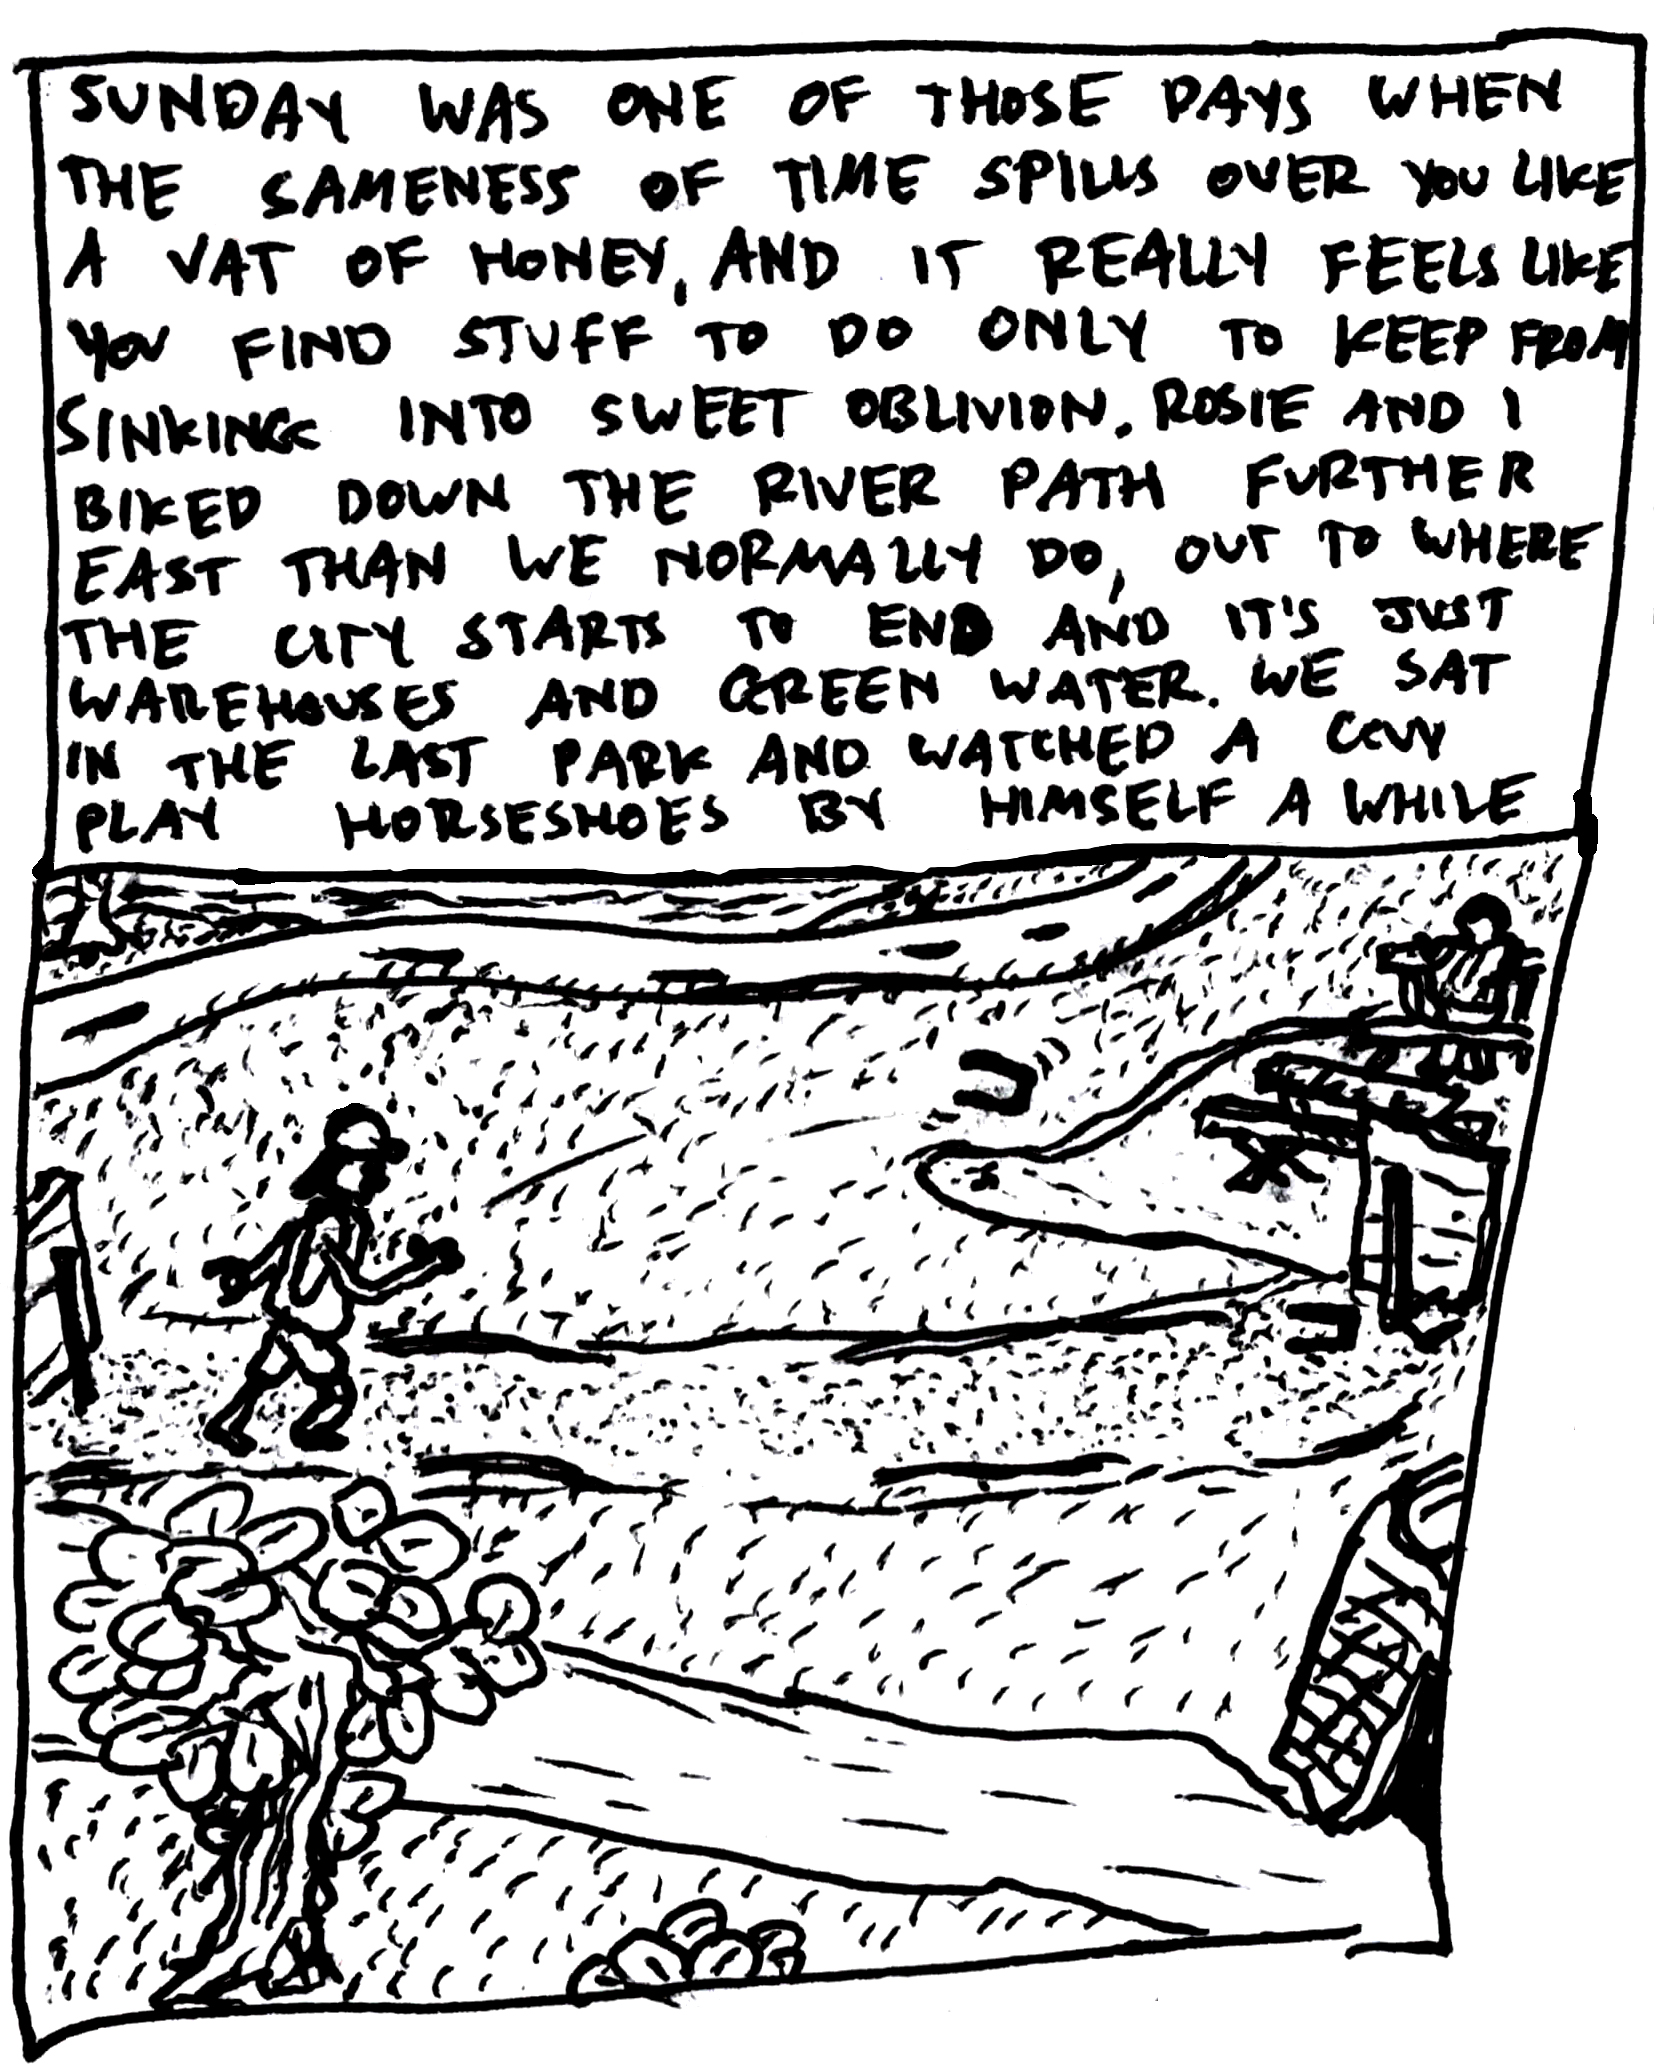 SUNDAY WAS ONE OF THOSE DAYS WHEN
THE SAMENESS OF TIME SPILLS OVER YOU LIKE
A VAT OF HONEY, AND IT REALLY FEELS LIKE
YOU FIND STUFF TO DO ONLY TO KEEP FROM
SINKING INTO SWEET OBLIVION. ROSIE AND I
BIKED DOWN THE RIVER PATH FURTHER
EAST THAN WE NORMALLY DO, OUT TO WHERE
THE CITY STARTS TO END AND IT'S JUST
WAREHOUSES AND GREEN WATER. WE SAT
IN THE LAST PARK AND WATCHED A
PLAY HORSESHOES BY HIMSELF A WHILE